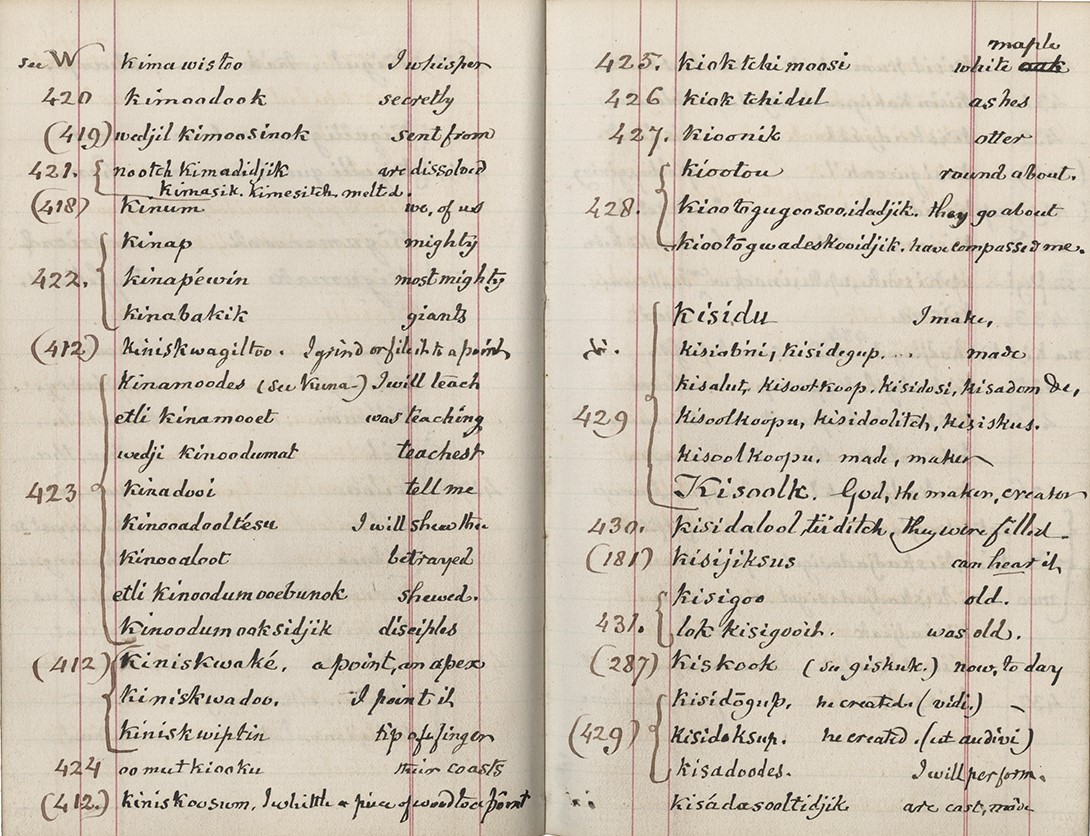 see W kimawistoo I whisper
420 kimoodook secretly
(419) wedjil kimoosinok sent from
421. nootch kimadidjik are dissolved
kimasik. kimesitch. melted.
(418) Kinum we, of us
kinap mighty
422. kinapéwin most mighty
kinabakik giants
(412) kiniskwagiltoo. I grind or file it to a point
Kinamoodes (see Kuna-) I will teach
etli kinamooet was teaching
wedji kinoodumat teachest
423 kinadooi tell me
kinooadooltésu I will shew thee
kinooaloot betrayed
etli kinoodumooebunok shewed.
Kinoodumoaksidjik disciples
(412) Kiniskwaké. a point, an apex
kiniskwadoo. I point it
kiniskwiptin tip of finger
424 oomutkiooku their coasts
(412.) kiniskowsum, I whittle a piece of wood to a point
maple
425. kioktchimoosi white oak
426 kioktchidul ashes
427. kioonik otter
kiootou round about.
428. kiootogugoosoo.idadjik. they go about
kiootōgwadeskooidjik. have compassed me.
kisidu I make,
kisiobni, kisidegup.... made
kisalut, kisootkoop. kisidosi, kisadom &c,
429 kisoolkoopu, kisidoolitch, kisiskus.
kisoolkoopu. made, maker
Kisoolk. God, the maker, creator
430. kisidalool,tiditch, they were filled.
(181) kisijiksus can hear it,
kisigoo old.
431. lok kisigooit. was old.
(287) Kiskook (see giskuk.) now, to day
kisidōgup. he created. (vidi.)
(429) kisidoksup. he created. (ut audivi)
kisadoodes. I will perform.
kisádasooltidjik are cast, made